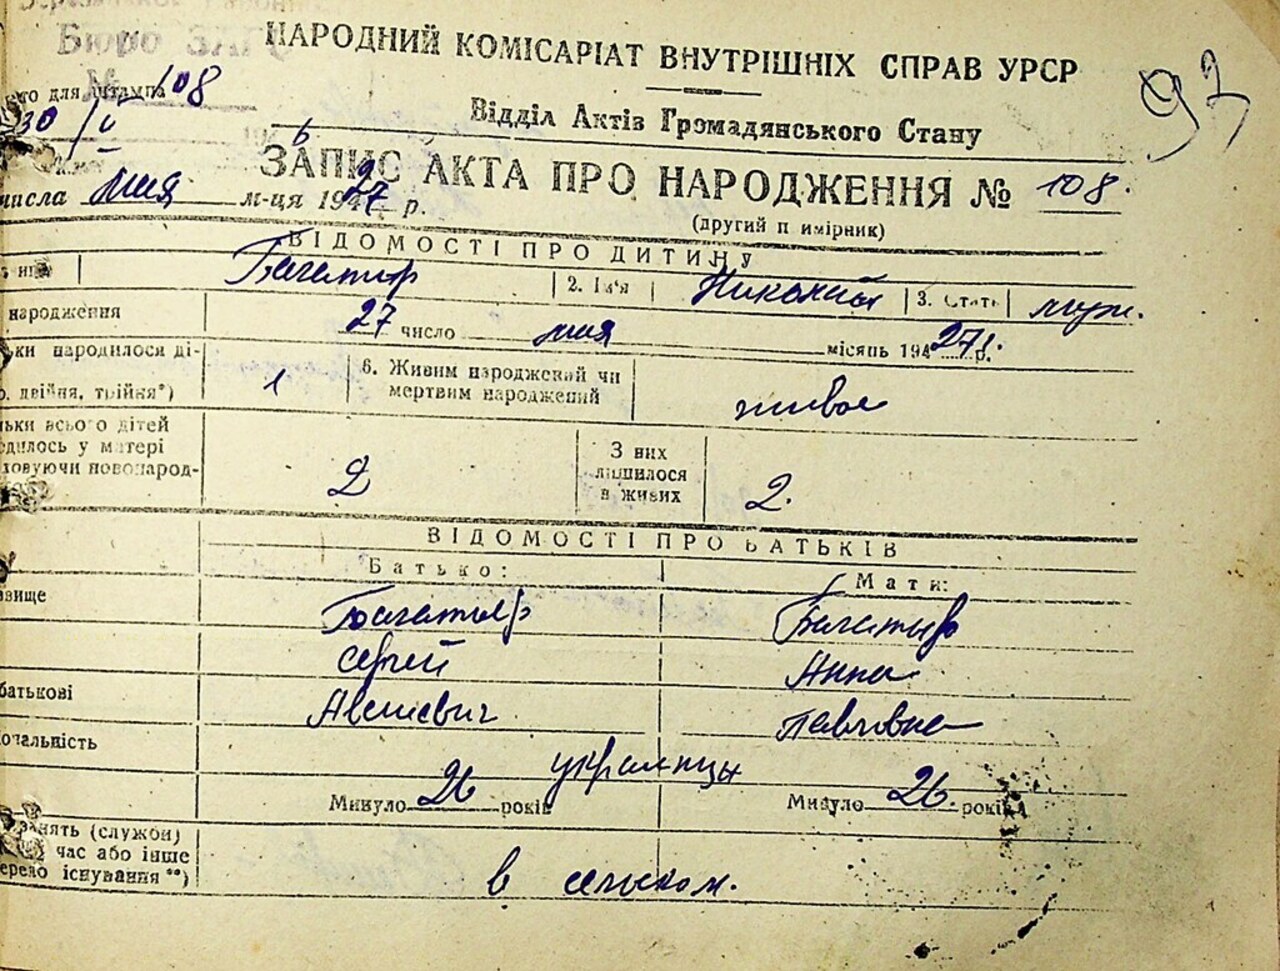 Бюро ЗАГС
НАРОДНИЙ КОМІСАРІАТ ВНУТРІШНІХ СПРАВ УРСР
97
го для штампа 108
Відділ Актів Громадянського Стану
30/V
ЗАПИС АКТА ПРО НАРОДЖЕННЯ № 108.
числа мая м-ця 1927 р.
(другий п имірник)
ВІДОМОСТІ ПРО ДИТИНУ
Багатир 2. Ім'я Николай 3. Стать муж.
народження 27 число мая місяць 194 27 г. р.
ьки народилося ді-
о, двійня, трійня*) 1 6. Живим народжений чи
мертвим народжений живое
ьки всього дітей
одилось у матері
ховуючи новонарод- 2 З них
лишилося
в живих 2.
ВІДОМОСТІ ПРО БАТЬКІВ
Батько: Мати:
звище Багатыр Багатыр
Сергей Анна
батькові Павловна
ональність украинцы
Минуло 26 років Минуло 26 років
занять (служби)
час або інше
ерело існування **) в сельском.